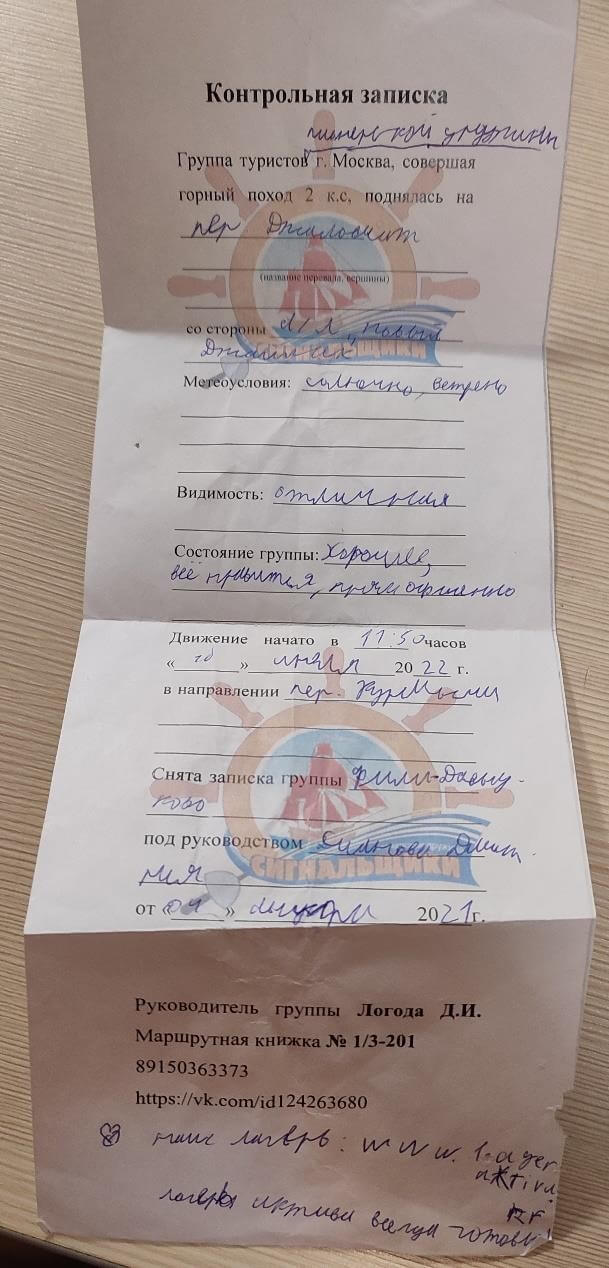 Контрольная записка
пионерской дружины
Группа туристов г. Москва, совершая
горный поход 2 к.с, поднялась на
пер Джаловчат
(название перевала, вершины)
со стороны а/л "новый
СИГНАЛЬЩИКИ
Метеоусловия: солнечно, ветрено
Видимость: отличная
Состояние группы: Хорошее,
всё нравится, прям офигенно
Движение начато в 11:50 часов
« » июля 2022 г.
в направлении пер. Курмычи
Снята записка группы Фили-Давыд-
ково
под руководством
СИГНАЛЬЩИКИ
от « » 2021г.
Руководитель группы Логода Д.И.
Маршрутная книжка № 1/3-201
89150363373
https://vk.com/id124263680
наш лагерь: www. lager
aktiva.
RF
лагерь актива всегда готовы!